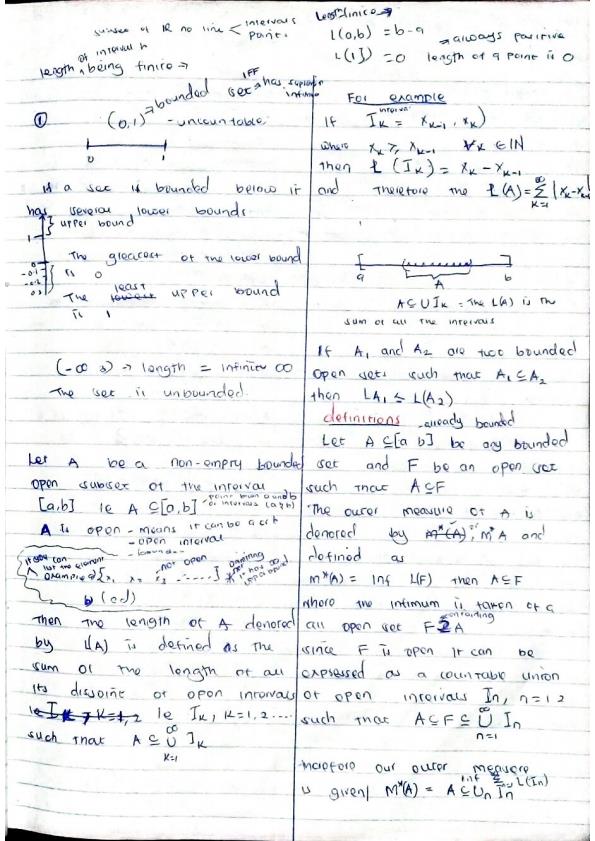 subset of IR no line < intervals
points
Length finite →
L(a,b) = b-a
→ always positive
L([1]) = 0 length of a point is 0
length of interval being finite →
① (0,1) → bounded set IFF has supremum infimum
- uncountable
0 1
If a set is bounded below it
has several lower bounds
} upper bound
1
0
-0.1
-0.2
The greatest of the lower bound
is 0
The least upper bound
is 1
(-∞ 3) → length = infinite ∞
The set is unbounded.
Let A be a non-empty bounded
open subset of the interval
[a,b] ie A ⊆ [a,b]
A is open - means it can be a
- open interval
- bounded
if you can list the element
example {x₁ x₂ x₃ ......} not open
(cd)
Then the length of A denoted
by L(A) is defined as the
sum of the length of all
its disjoint of open intervals
ie I K, K=1,2 ie Iₖ, K=1,2 ....
such that A ⊆ ∪ Iₖ
∞
K=1
For example
If Iₖ = xₖ₋₁, xₖ)
interval
where xₖ ≥ xₖ₋₁ ∀k ∈ IN
then ℓ(Iₖ) = xₖ - xₖ₋₁
and Therefore the ℓ(A) = ∞ Σ K=1 |xₖ-xₖ₋₁|
a A b
A ⊆ ∪ Iₖ = The L(A) is the
sum of all the intervals
If A₁ and A₂ are two bounded
open sets such that A₁ ⊆ A₂
then LA₁ ≤ L(A₂)
definitions already bounded
Let A ⊆ [a b] be any bounded
set and F be an open set
such that A ⊆ F
The outer measure of A is
denoted by m*(A), m*A and
defined as
m*(A) = Inf L(F) then A ⊆ F
where the infimum is taken of a
all open set F ⊇ A
containing
since F is open it can be
expressed as a countable union
of open intervals In, n = 1 2
such that A ⊆ F ⊆ ∞ ∪ n=1 In
therefore our outer measure
is given/ M*(A) = inf A ⊆ ∪n In Σ L(In)